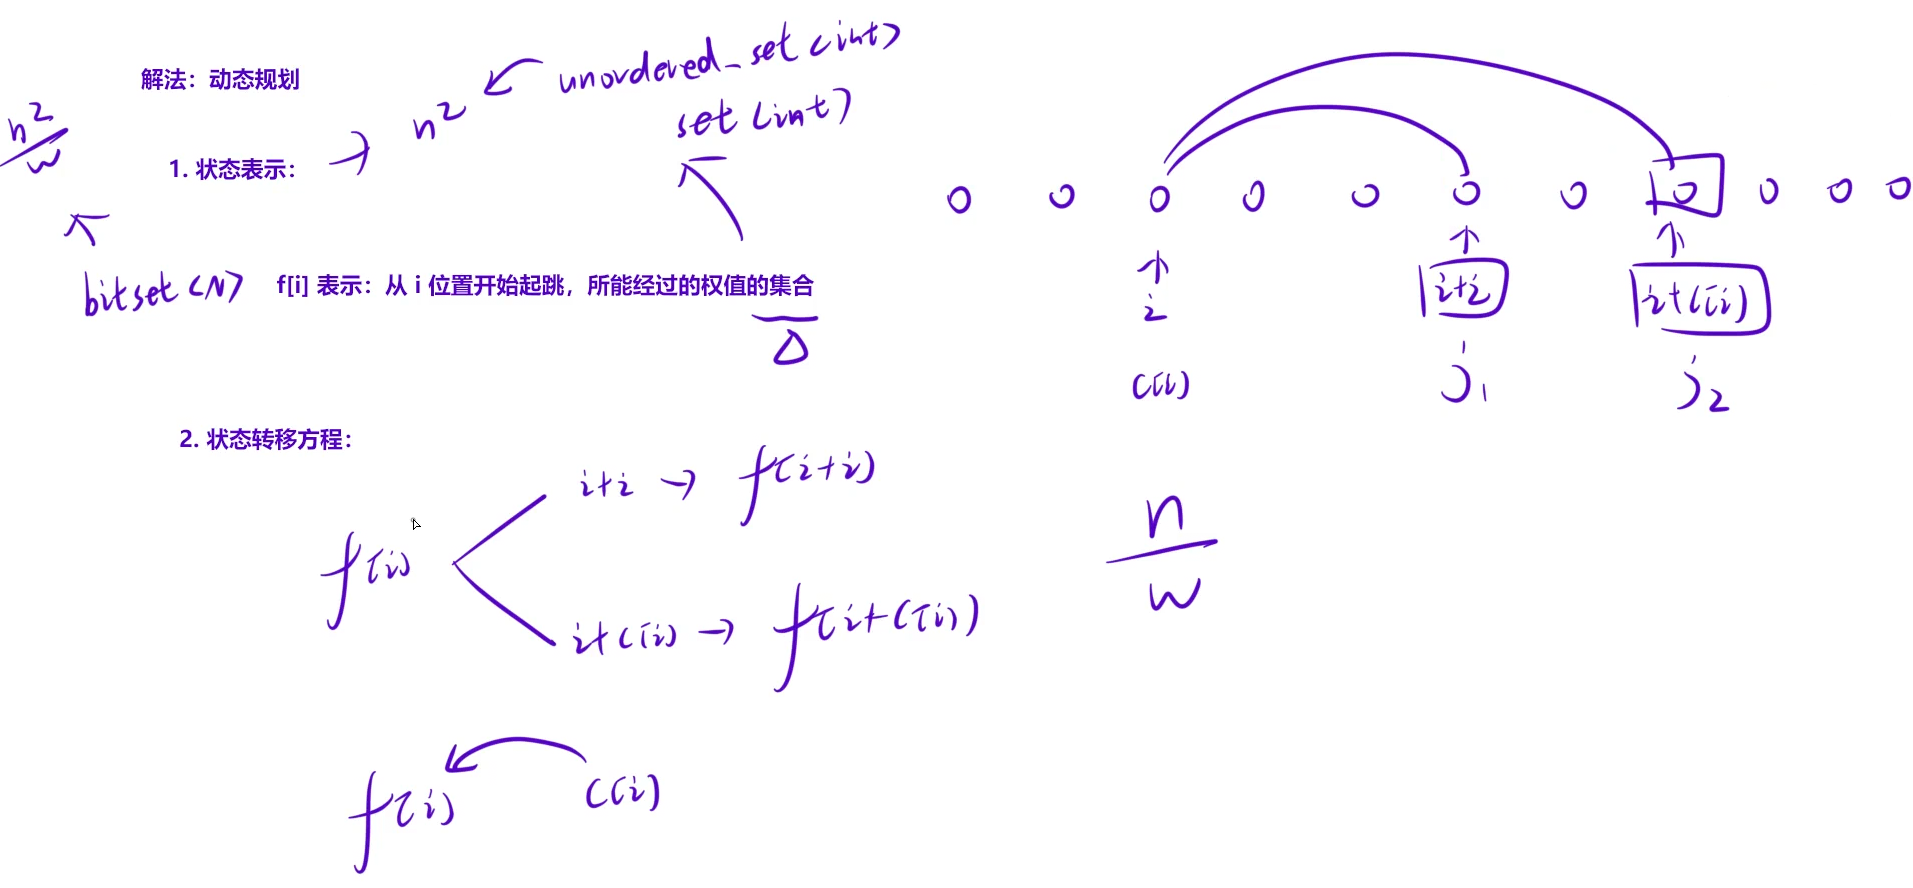 解法：动态规划
n²/w
1. 状态表示：
→ n² ← unordered_set<int>
set<int>
bitset<N>
f[i] 表示：从 i 位置开始起跳，所能经过的权值的集合
△
2. 状态转移方程：
f[i]
i+i → f[i+i]
i+c[i] → f[i+c[i]]
f[i] ← c[i]
0 0 0 0 0 0 0 0 0 0 0
i
i+i
i+c[i]
c[i]
j₁
j₂
n/w